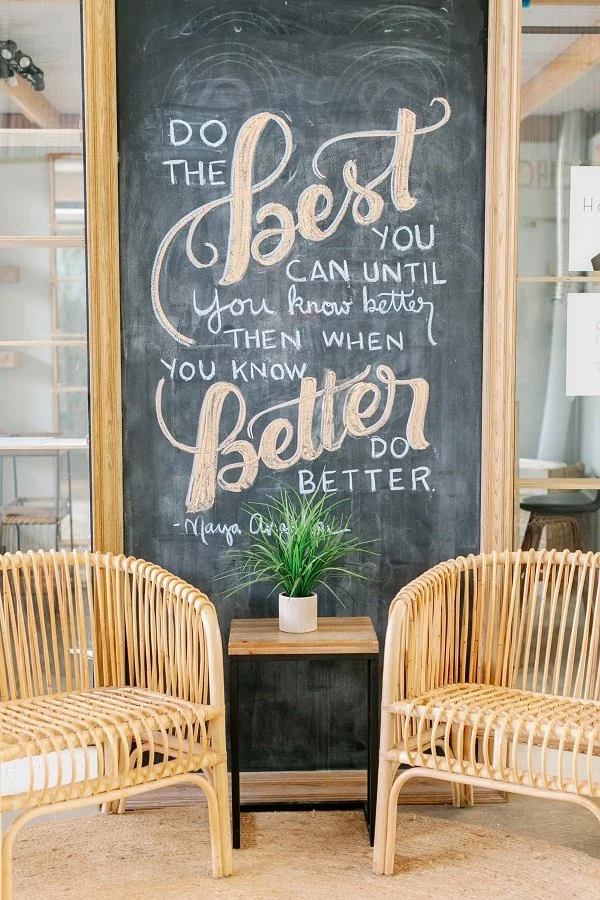 DO
THE Best
YOU
CAN UNTIL
You know better
THEN WHEN
YOU KNOW
Better
DO
BETTER.
- Maya